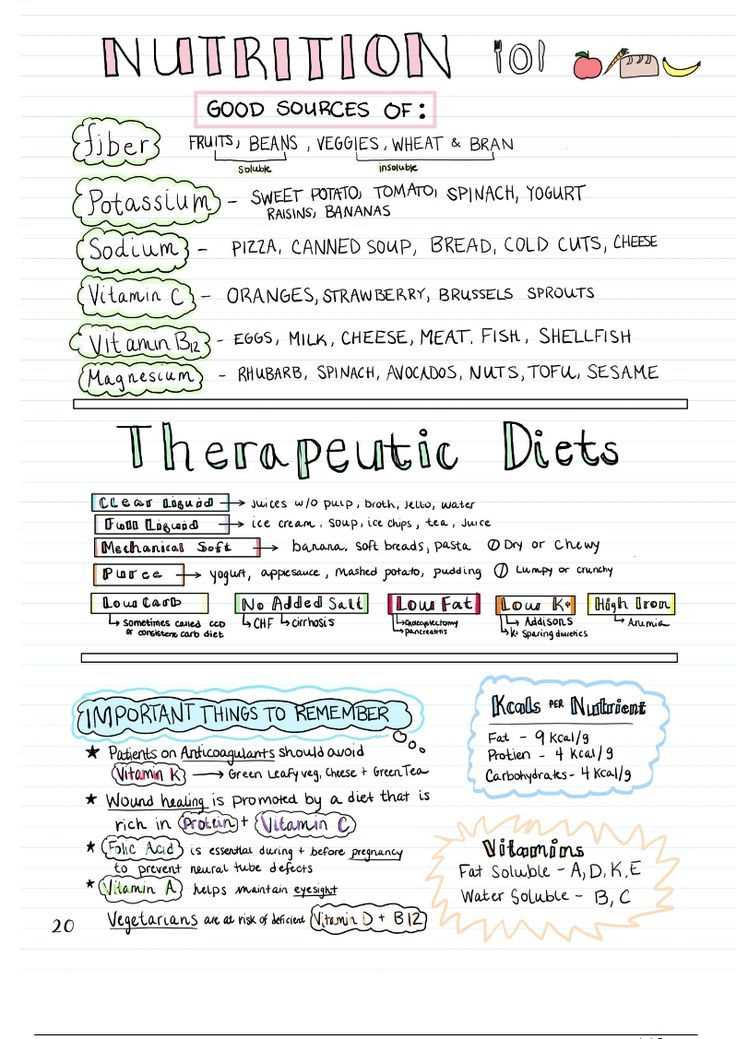 NUTRITION 101
GOOD SOURCES OF:
fiber FRUITS, BEANS, VEGGIES, WHEAT & BRAN
soluble insoluble
Potassium - SWEET POTATO, TOMATO, SPINACH, YOGURT
RAISINS, BANANAS
Sodium - PIZZA, CANNED SOUP, BREAD, COLD CUTS, CHEESE
Vitamin C - ORANGES, STRAWBERRY, BRUSSELS SPROUTS
Vitamin B12 - EGGS, MILK, CHEESE, MEAT. FISH, SHELLFISH
Magnesium - RHUBARB, SPINACH, AVOCADOS, NUTS, TOFU, SESAME
Therapeutic Diets
Clear Liquid → Juices w/o pulp, broth, Jello, water
Full Liquid → ice cream, soup, ice chips, tea, Juice
Mechanical Soft → banana, soft breads, pasta Dry or Chewy
Puree → yogurt, applesauce, mashed potato, pudding Lumpy or crunchy
Low Carb No Added Salt Low Fat Low K+ High Iron
↳ Sometimes called CCD ↳ CHF ↳ cirrhosis ↳ Addisons ↳ Anemia
or consistent carb diet ↳ Pancreatitis ↳ K+ Sparing diuretics
IMPORTANT THINGS TO REMEMBER
★ Patients on Anticoagulants should avoid
Vitamin K → Green Leafy veg, Cheese + Green Tea
★ Wound healing is promoted by a diet that is
rich in Protein + Vitamin C
★ Folic Acid is essential during + before pregnancy
to prevent neural tube defects
★ Vitamin A helps maintain eyesight
Vegetarians are at risk of deficient Vitamin D + B12
Kcals PER Nutrient
Fat - 9 Kcal/g
Protien - 4 Kcal/g
Carbohydrates - 4 Kcal/g
Vitamins
Fat Soluble - A, D, K, E
Water Soluble - B, C
20